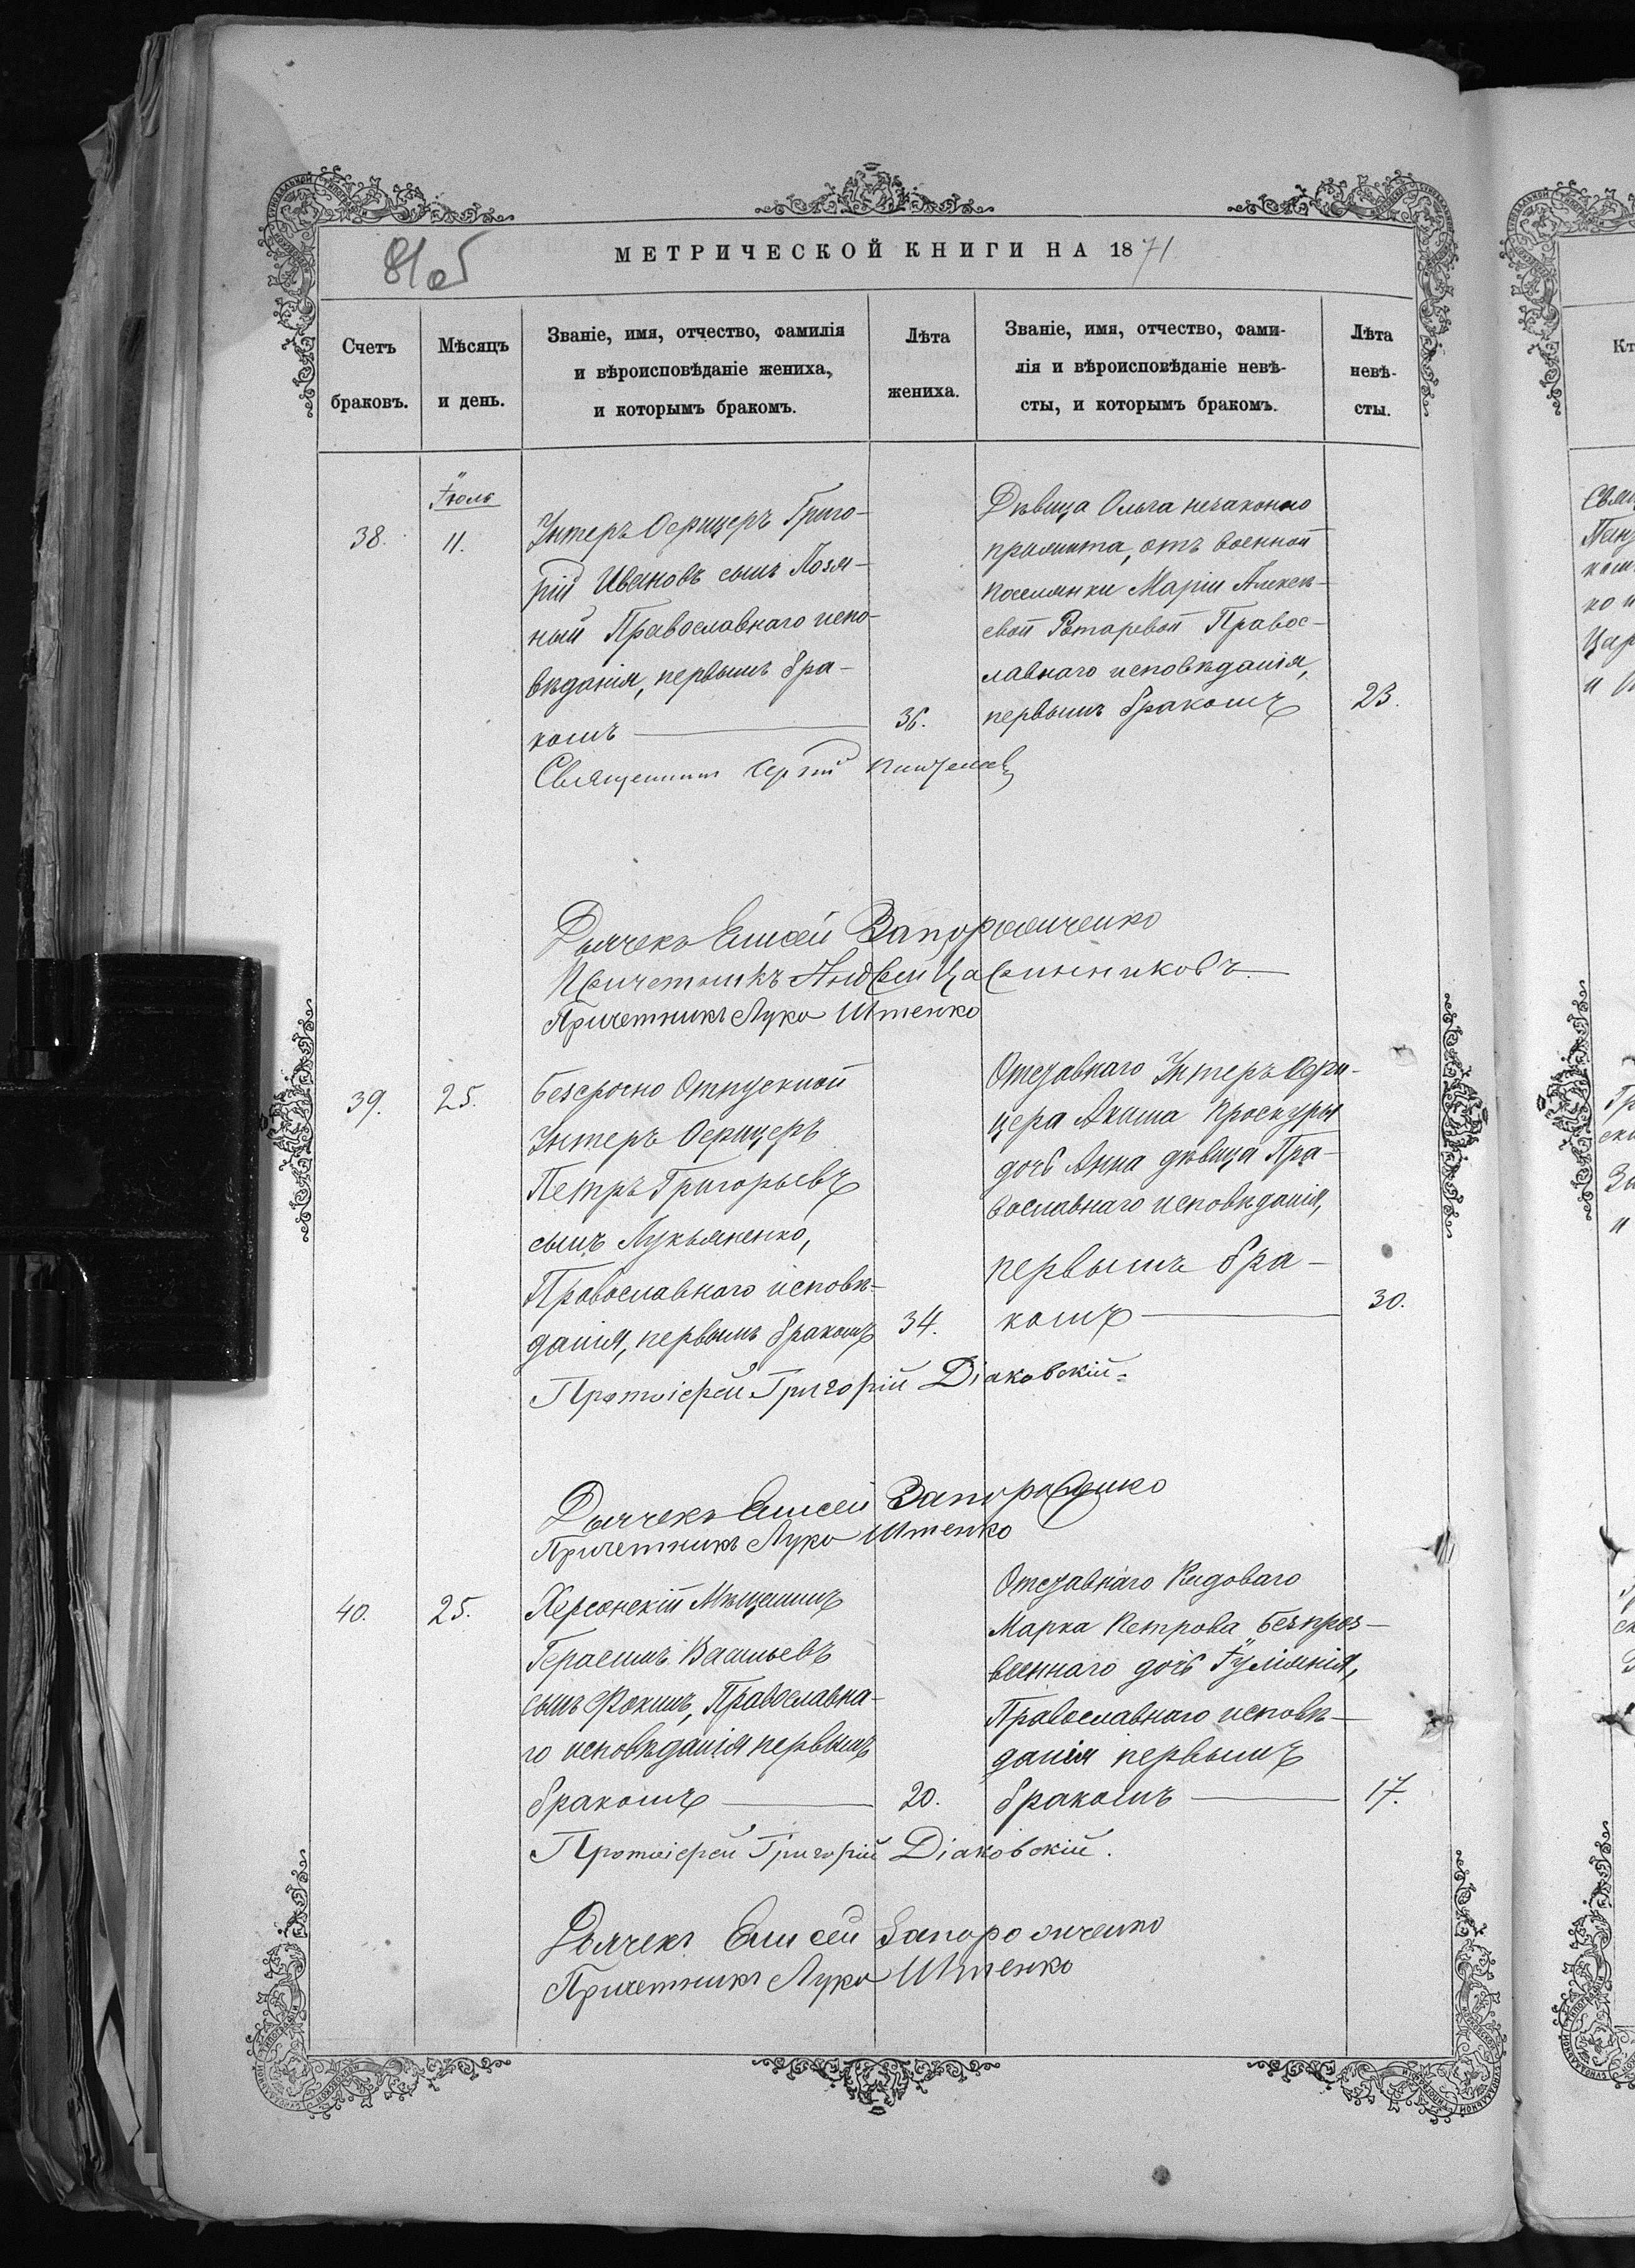 81об
МЕТРИЧЕСКОЙ КНИГИ НА 1871
Счетъ браковъ.
Мѣсяцъ и день.
Званіе, имя, отчество, фамилія
и вѣроисповѣданіе жениха,
и которымъ бракомъ.
Лѣта жениха.
Званіе, имя, отчество, фами-
лія и вѣроисповѣданіе невѣ-
сты, и которымъ бракомъ.
Лѣта невѣ-
сты.
38.
Іюля
11.
Унтеръ Офицеръ Григо-
рій Ивановъ сынъ Позя-
ный Православнаго испо-
вѣданія, первымъ бра-
комъ
36.
Дѣвица Ольга незаконно
прижита, отъ военной
поселянки Маріи Алексѣ-
евой Ротаревой Правос-
лавнаго исповѣданія,
первымъ бракомъ
23.
Священникъ Сергій
Дьячекъ Елисей Запорожченко
Причетникъ Андрей
Причетникъ Лука Штенко
39.
25.
Безсрочно Отпускной
Унтеръ Офицеръ
Петръ Григорьевъ
сынъ Лукьяненко,
Православнаго исповѣ-
данія, первымъ бракомъ
34.
Отставнаго Унтеръ Офи-
цера Акима Проскуры
дочь Анна дѣвица Пра-
вославнаго исповѣданія,
первымъ бра-
комъ
30.
Протоіерей Григорій Діаковскій.
Дьячекъ Елисей
Причетникъ Лука Штенко
40.
25.
Херсонскій Мѣщанинъ
Герасимъ Васильевъ
сынъ Фокинъ, Православна-
го исповѣданія первымъ
бракомъ
20.
Отставнаго Рядоваго
Марка Петрова Безпроз-
веннаго дочь Іуліанія,
Православнаго исповѣ-
данія первымъ
бракомъ
17.
Протоіерей Григорій Діаковскій.
Дьячекъ Елисей Запорожченко
Причетникъ Лука Штенко